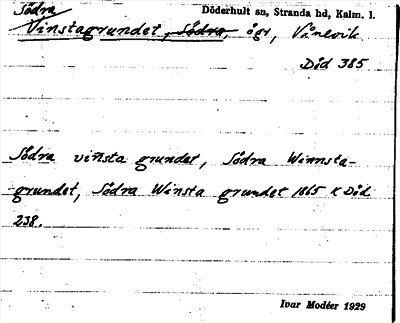 Södra Döderhult sn, Stranda hd, Kalm. l.
Vinstagrundet, Södra, ögr, Vånevik
Död 385
Södra vinsta grundet, Södra Winnsta-
grundet, Södra Winsta grundet 1865 K Död
238.
Ivar Modéer 1929